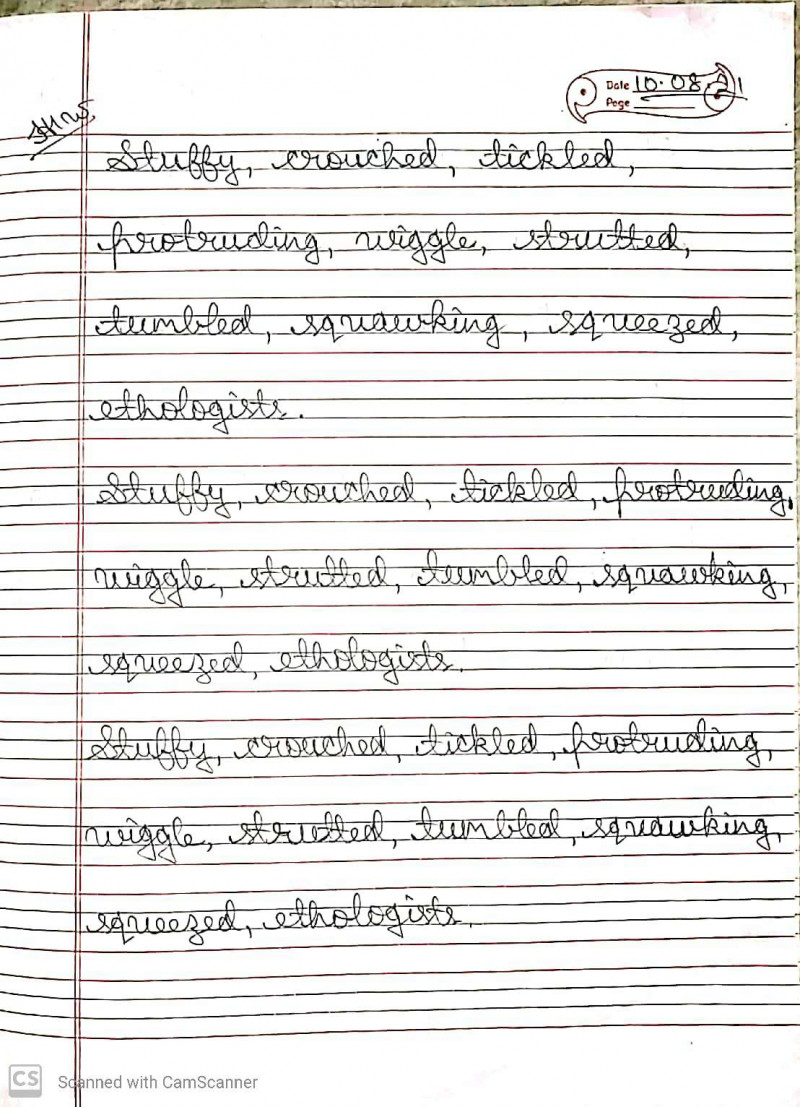 Date 10.08.21
Page
Stuffy, crouched, tickled,
protruding, wiggle, strutted,
tumbled, squawking, squeezed,
ethologists.
Stuffy, crouched, tickled, protruding,
wiggle, strutted, tumbled, squawking,
squeezed, ethologists.
Stuffy, crouched, tickled, protruding,
wiggle, strutted, tumbled, squawking,
squeezed, ethologists.
CS Scanned with CamScanner